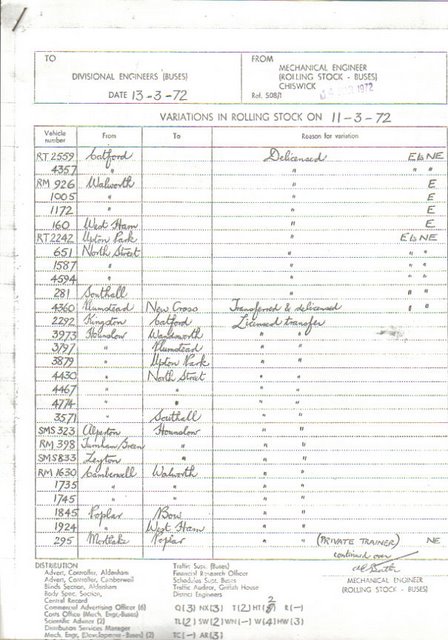 TO
DIVISIONAL ENGINEERS (BUSES)
DATE 13-3-72
FROM
MECHANICAL ENGINEER
(ROLLING STOCK - BUSES)
CHISWICK
Ref. 508/1 1972
VARIATIONS IN ROLLING STOCK ON 11-3-72
Vehicle number From To Reason for variation
RT 2559 Catford Delicensed E to NE
4357 " " " "
RM 926 Walworth " E
1005 " " E
1172 " " E
160 West Ham " E
RT 2242 Upton Park " E to NE
651 North Street " " "
1587 " " " "
4594 " " " "
281 Southall " " "
4360 Plumstead New Cross Transferred & delicensed " "
2292 Kingston Catford Licensed transfer
3973 Hounslow Wandsworth " "
3797 " Plumstead " "
3879 " Upton Park " "
4430 " North Street " "
4467 " " " "
4774 " " " "
3571 " Southall " "
SMS 323 Alperton Hounslow " "
RM 398 Turnham Green " " "
SMS 833 Leyton " " "
RM 1630 Camberwell Walworth " "
1735 " " " "
1745 " " " "
1845 Poplar Bow " "
1924 " West Ham " "
295 Mortlake Poplar " (PRIVATE TRAINER) NE
continued over
MECHANICAL ENGINEER
(ROLLING STOCK - BUSES)
DISTRIBUTION
Advert. Controller, Aldenham
Advert. Controller, Camberwell
Body Spec. Section,
Central Record
Commercial Advertising Officer (6)
Costs Office (Mech. Engr.-Buses)
Scientific Adviser (2)
Distribution Services Manager
Mech. Engr. (Development-Buses) (2)
Traffic Supt. (Buses)
Financial Research Officer
Schedules Supt. Buses
Traffic Auditor, Griffith House
District Engineers
Q (3) NX (3) T (2) HT (2) R (-)
TL (2) SW (2) WN (-) W (4) HW (3)
TC (-) AR (3)